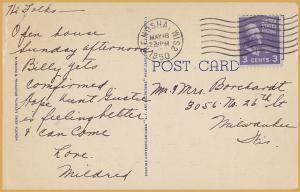 The Folks
Open house
Sunday afternoon
Billy gets
confirmed
Hope Aunt Gustie
is feeling better
& can Come
Love
Mildred
KENOSHA, WIS.
MAY 16
1950
POST CARD
3 CENTS 3
Mr & Mrs. Borchardt
3056 No. 26th St
Milwaukee
Wis.